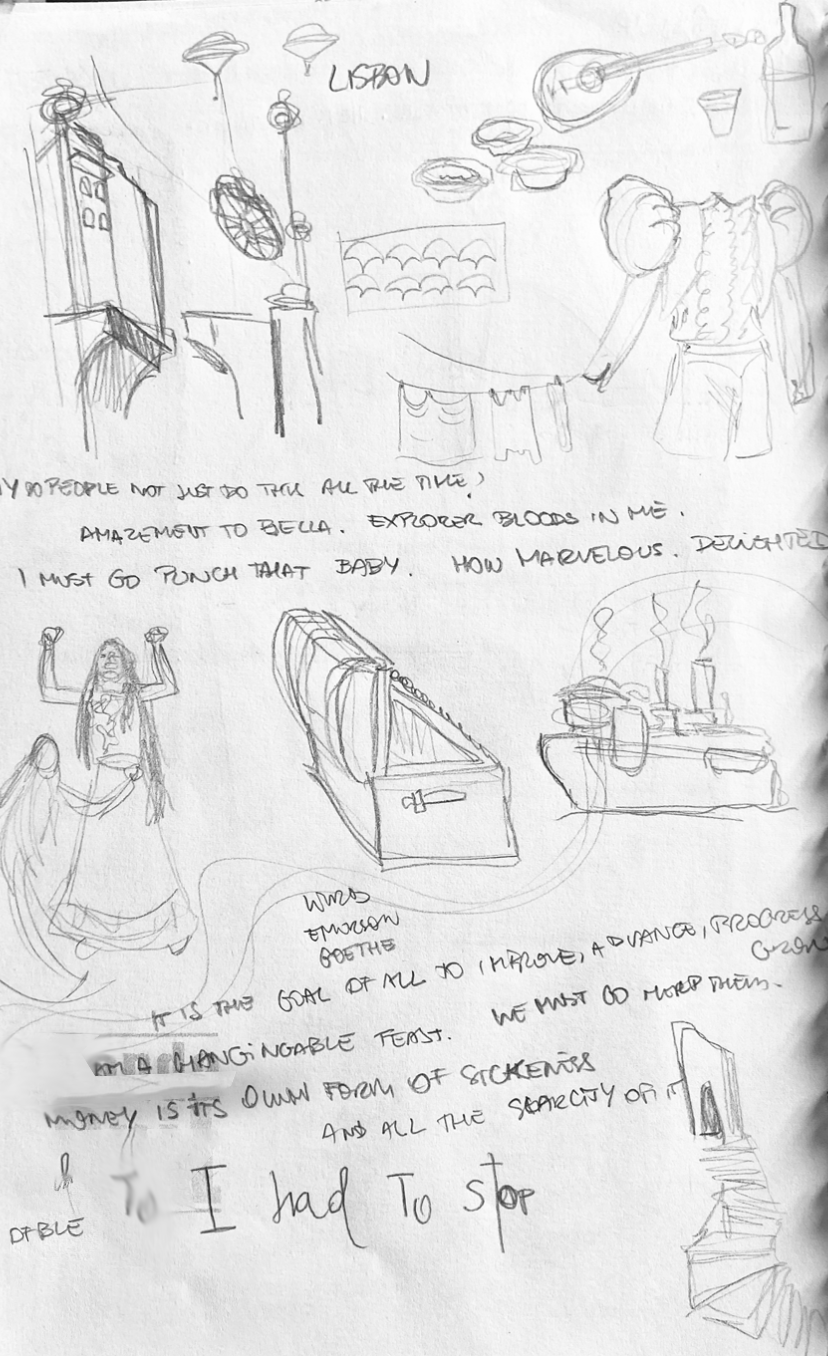 LISBON
Y DO PEOPLE NOT JUST DO THIS ALL THE TIME?
AMAZEMENT TO BELLA. EXPLORER BLOODS IN ME.
I MUST GO PUNCH THAT BABY. HOW MARVELOUS. DELIGHTED
WORDS
EMERSON
GOETHE
IT IS THE GOAL OF ALL TO IMPROVE, ADVANCE, PROGRESS
GROW
AM A CHANGINGABLE FEAST. WE MUST GO HELP THEM.
MONEY IS ITS OWN FORM OF SICKENESS
AND ALL THE SCARCITY OF IT
I had To stop
To